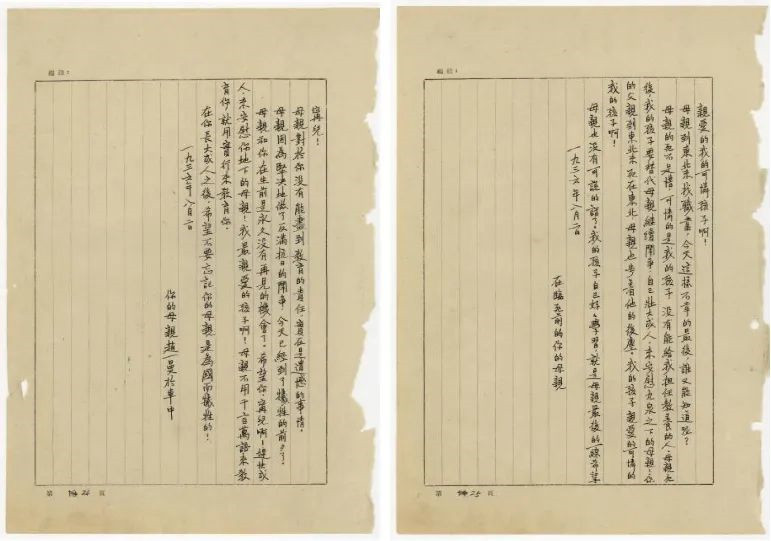 備註:
寗兒!
母親對於你沒有能盡到教育的責任,實在是遺憾的事情。
母親因為堅決地做了反滿抗日的鬥爭,今天已經到了犧牲的前夕了。
母親和你在生前是永久沒有再見的機會了。希望你,寗兒啊!趕快成
人,來安慰你地下的母親!我最親愛的孩子啊!母親不用千言萬語來教
育你,就用實行來教育你。
在你長大成人之後,希望不要忘記你的母親是為國而犧牲的!
一九三六年八月二日
你的母親趙一曼於車中
第 24 頁
備註:
親愛的我的可憐孩子啊!
母親到東北來找職業,今天這樣不幸的最後,誰又能知道呢?
母親的死不足惜,可憐的是我的孩子,沒有能給我担任教養的人。母親死
後,我的孩子要替代母親繼續鬥爭,自己壯大成人,來安慰九泉之下的母親!你
的父親到東北來死在東北,母親也步着他的後塵。我的孩子,親愛的可憐的
我的孩子啊!
母親也沒有可說的話了,我的孩子自己好好學習,就是母親最後的一線希望
一九三六年八月二日
在臨死前的你的母親
第 25 頁